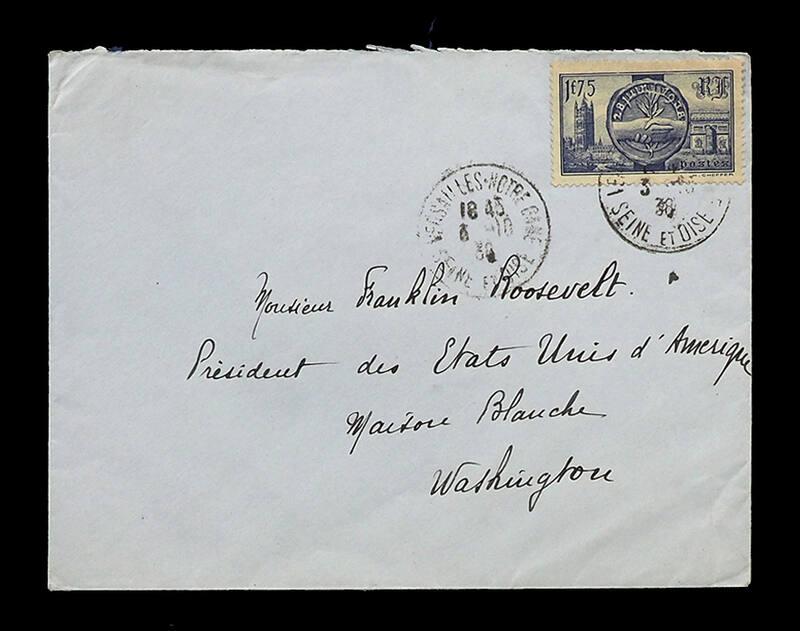 1f75
RF
28 JUIN 1938
postes
VERSAILLES-NOTRE DAME
18 45
-10
38
SEINE ET OISE
3
38
SEINE ET OISE
Monsieur Franklin Roosevelt.
Président des Etats Unis d'Amerique
Maison Blanche
Washington